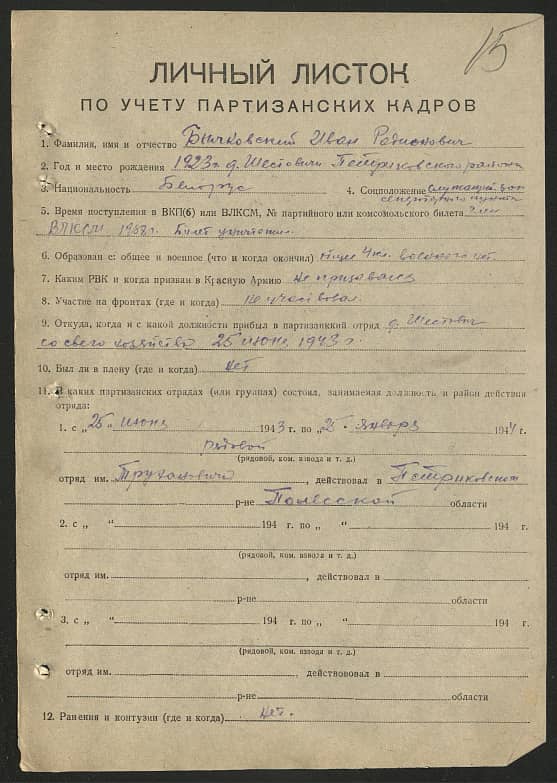 15
ЛИЧНЫЙ ЛИСТОК
ПО УЧЕТУ ПАРТИЗАНСКИХ КАДРОВ
1. Фамилия, имя и отчество Бычковский Иван
2. Год и место рождения 1923 г. д. Шестовичи Петриковского района
3. Национальность Белорус 4. Соцположение служащий
5. Время поступления в ВКП(б) или ВЛКСМ, № партийного или комсомольского билета член
ВЛКСМ Билет уничтожил
6. Образован е: общее и военное (что и когда окончил) военного нет
7. Каким РВК и когда призван в Красную Армию не призывался
8. Участие на фронтах (где и когда) не участвовал
9. Откуда, когда и с какой должности прибыл в партизанский отряд д. Шестович
со своего хозяйства 25 июня 1943 г.
10. Был ли в плену (где и когда) нет
11. В каких партизанских отрядах (или группах) состоял, занимаемая должность и район действия
отряда:
1. с „25“ июня 1943 г. по „25“ января 1944 г.
рядовой
(рядовой, ком. взвода и т. д.)
отряд им. Трухановича, действовал в Петриковском
р-не Полесской области
2. с „ “ 194 г. по „ “ 194 г.
(рядовой, ком. взвода и т. д.)
отряд им. , действовал в
р-не области
3. с „ “ 194 г. по „ “ 194 г.
(рядовой, ком. взвода и т. д.)
отряд им. , действововал в
р-не области
12. Ранения и контузии (где и когда) нет.